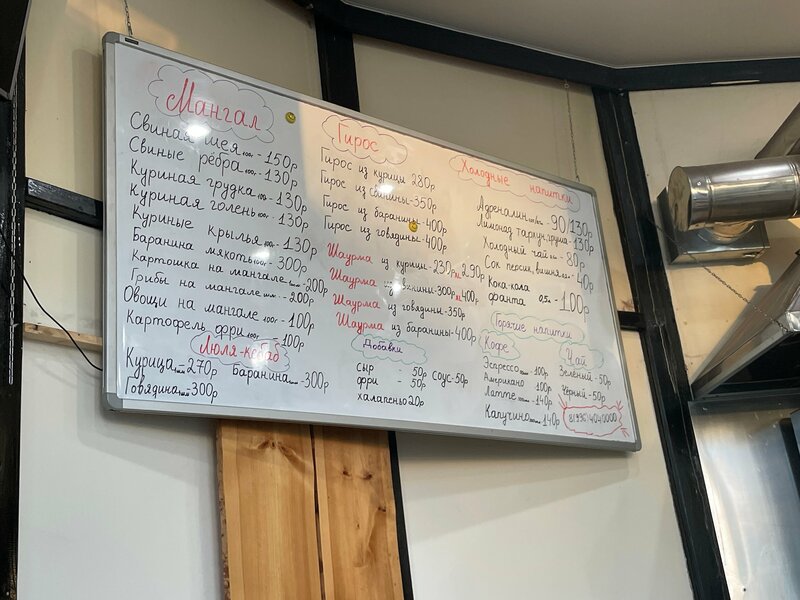 Мангал
Свиная шея 100г - 150р
Свиные рёбра 100г - 130р
Куриная грудка 100г - 130р
Куриная голень 100г - 130р
Куриные крылья 100г - 130р
Баранина мякоть 100г - 300р
Картошка на мангале - 200р
Грибы на мангале - 200р
Овощи на мангале 100г - 100р
Картофель фри 100г - 100р
Люля-кебаб
Курица - 270р Баранина - 300р
Говядина - 300р
Гирос
Гирос из курицы 280р
Гирос из свинины - 350р
Гирос из баранины - 400р
Гирос из говядины - 400р
Шаурма из курицы - 230р 290р
Шаурма из свинины - 300р 400р
Шаурма из говядины - 350р
Шаурма из баранины - 400р
Добавки
сыр - 50р Соус - 50р
фри - 50р
халапеньо 20р
Холодные напитки
Адреналин - 90/130р
Лимонад тархун, груша - 130р
Холодный чай - 80р
Сок персик, вишня - 40р
Кока-кола
Фанта 0,5 - 100р
Горячие напитки
Кофе
Эспрессо - 100р
Американо 100р
Латте - 140р
Капучино 140р
Чай
Зелёный - 50р
Чёрный - 50р